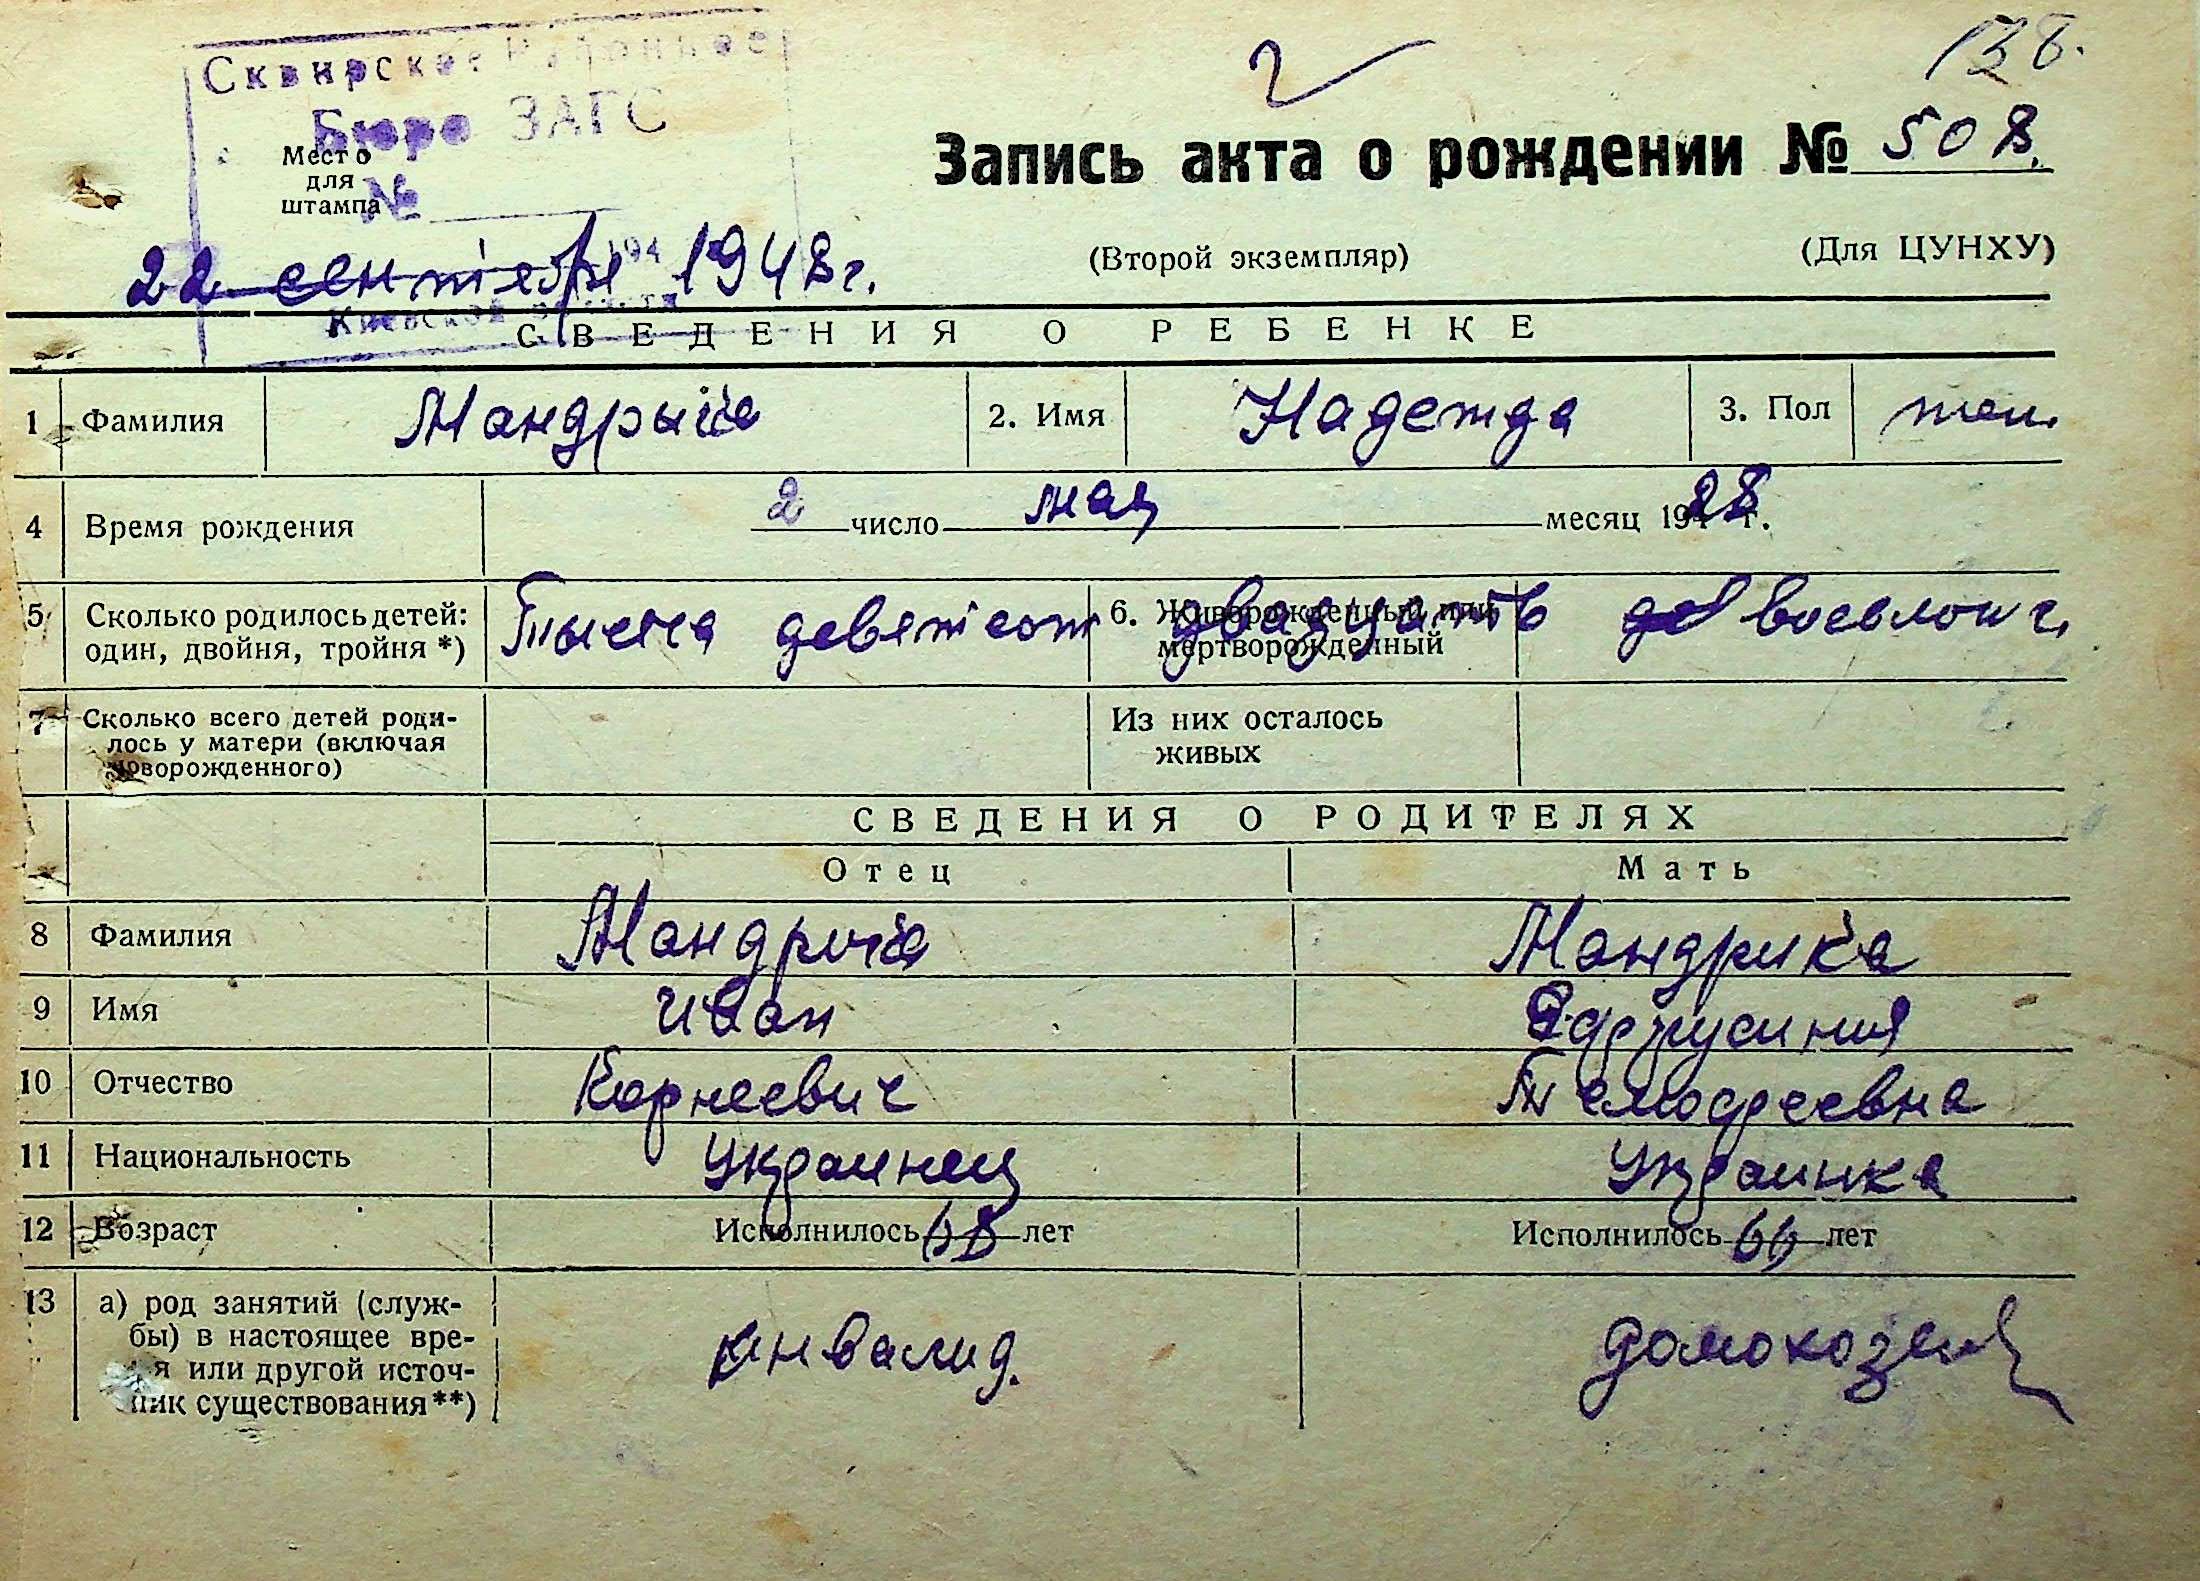 Сквирское Районное
Бюро ЗАГС
138.
Место
для
штампа
№
Запись акта о рождении № 508.
22 сентября 1948 г.
194
(Второй экземпляр)
(Для ЦУНХУ)
Киевской области
СВЕДЕНИЯ О РЕБЕНКЕ
1 Фамилия Мандрыка 2. Имя Надежда 3. Пол жен.
4 Время рождения 2 число мая месяц 1928 г.
5 Сколько родилось детей: один, двойня, тройня *) Тысяча девятсот 6. Живорожденный или мертворожденный двадцать восьмой г.
7 Сколько всего детей роди-
лось у матери (включая
новорожденного)
Из них осталось
живых
СВЕДЕНИЯ О РОДИТЕЛЯХ
Отец Мать
8 Фамилия Мандрика Мандрика
9 Имя Иван
10 Отчество Корнеевич Темофеевна
11 Национальность Украинец Украинка
12 Возраст Исполнилось 68 лет Исполнилось 66 лет
13 а) род занятий (служ-
бы) в настоящее вре-
мя или другой источ-
ник существования **)
инвалид.